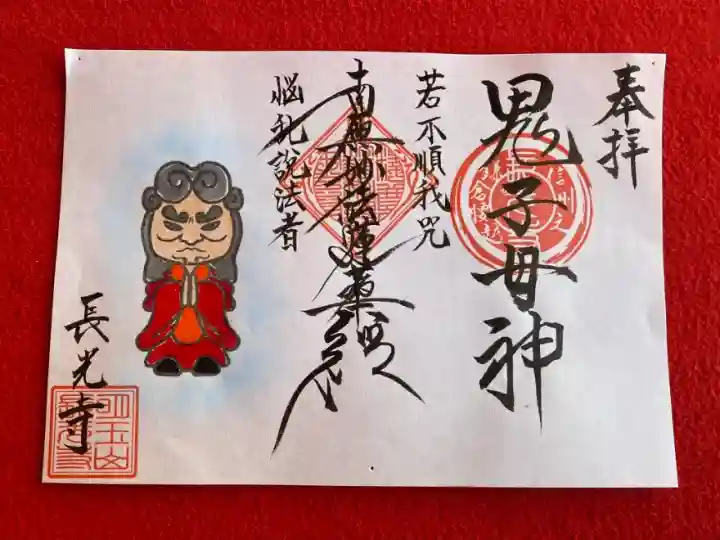 奉拝
鬼子母神
若不順我咒
南無妙法蓮華経
悩乱説法者
長光寺